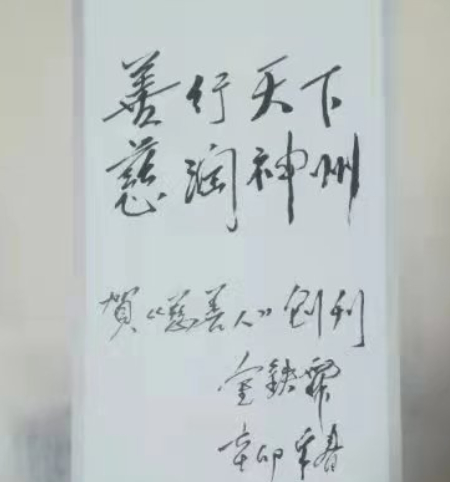 善行天下
慈润神州
賀《慈善人》创刊
金鐵霖
辛卯年春